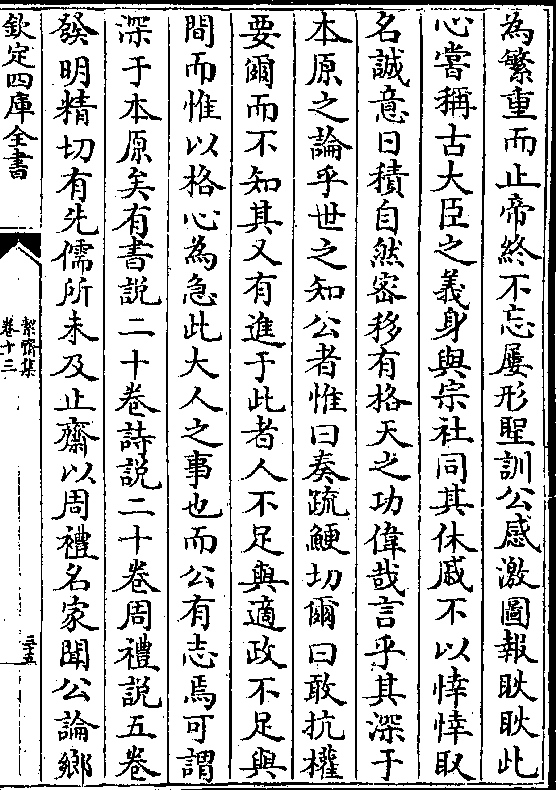 為繁重而止帝終不忘屢形聖訓公感激圖報耿耿此
心嘗稱古大臣之義身與宗社同其休戚不以悻悻取
名誠意日積自然密移有格天之功偉哉言乎其深于
本原之論乎世之知公者惟曰奏䟽鯁切爾曰敢抗權
要爾而不知其又有進于此者人不足與適政不足與
間而惟以格心為急此大人之事也而公有志焉可謂
深于本原矣有書説二十卷詩説二十卷周禮説五卷
發明精切有先儒所未及止齋以周禮名家聞公論鄉
欽定四庫全書
絜齋集
卷十三
三五